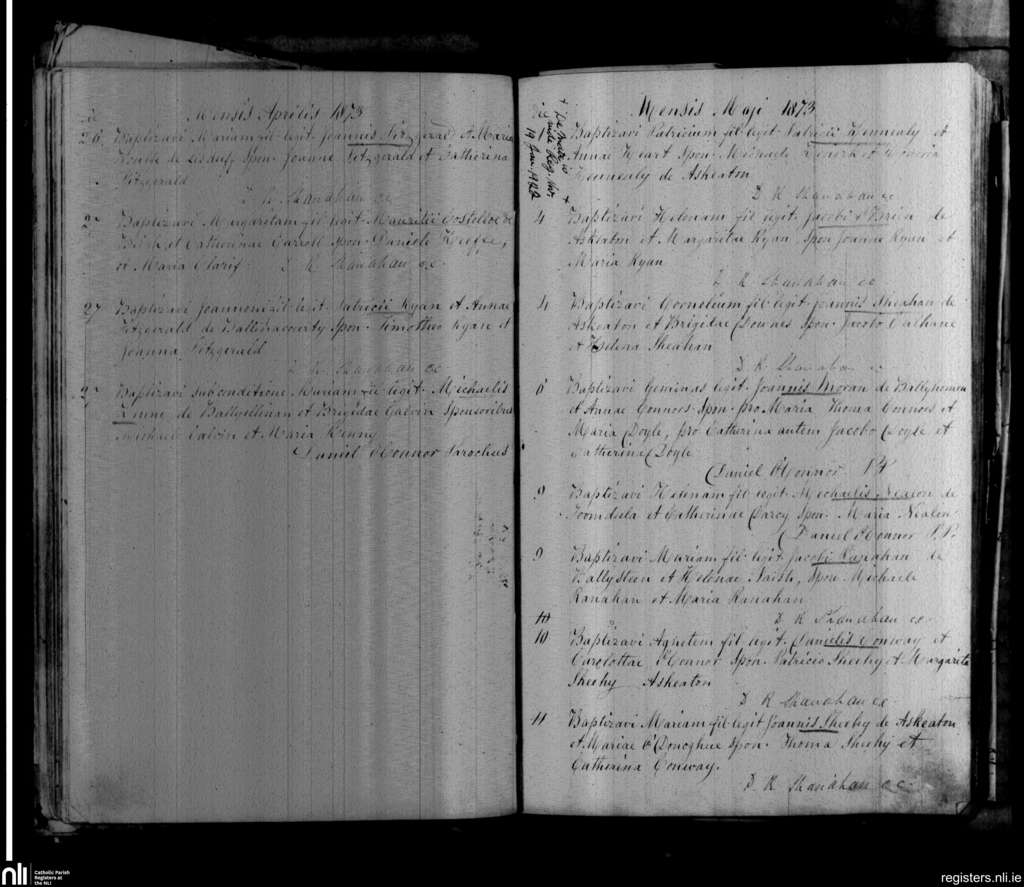 Mensis Aprilis 1873
26 Baptizavi Mariam fil legit Joannis Fitzgerald et Maria
de Spon Joanne Fitzgerald et Catherina
Fitzgerald
D R Shanahan cc
Baptizavi Margaretam fil legit Mauritii Costelloe de
et Catherinae Carroll Spon Daniele Keeffe,
et Maria
D R Shanahan cc
27 Baptizavi fil legit Patricii Ryan et Annae
Fitzgerald de Spon Timotheo Ryan et
Joanna Fitzgerald
D R Shanahan cc
27 Baptizavi sub conditione Mariam fil legit Michaelis
de et Brigidae Galvin Sponsoribus
Michaele Galvin et Maria Kenny
Daniel O'Connor Parochus
Mensis Maji 1873
+
19 Jan. 1922
Baptizavi Patricium fil legit Patricii Kennealy et
Annae Spon Michaele et
Kennealy de Askeaton
D R Shanahan cc
4 Baptizavi Helenam fil legit Jacobi de
Askeaton et Margaritae Ryan Spon Joanne Ryan et
Maria Ryan
D R Shanahan cc
4 Baptizavi fil legit Joannis Sheahan de
Askeaton et Brigidae Downes Spon Jacobo Culhane
et Helena Sheahan
D R Shanahan
6 Baptizavi Geminas legit Joannis Moran de
et Annae Connors Spon pro Maria Thoma Connors et
Maria Doyle, pro Catherina autem Jacobo Doyle et
Catherina Doyle
Daniel O'Connor PP
9 Baptizavi Helenam fil legit Michaelis Nealon de
Toomdeela et Catherinae Darcy Spon Maria Nealon
Daniel O'Connor P.P.
9 Baptizavi Mariam fil legit Jacobi Ranahan de
Ballysteen et Helenae Naish, Spon Michaele
Ranahan et Maria Ranahan
D R Shanahan cc
10
10 Baptizavi Agnetem fil legit Danielis Conway et
Carolottae O'Connor Spon Patricio Sheehy et Margarita
Sheehy Askeaton
D R Shanahan cc
11 Baptizavi Mariam fil legit Joannis Sheehy de Askeaton
et Mariae O'Donoghue Spon Thoma Sheehy et
Catherina Conway.
D R Shanahan cc
nli
Catholic Parish
Registers at
the NLI
registers.nli.ie